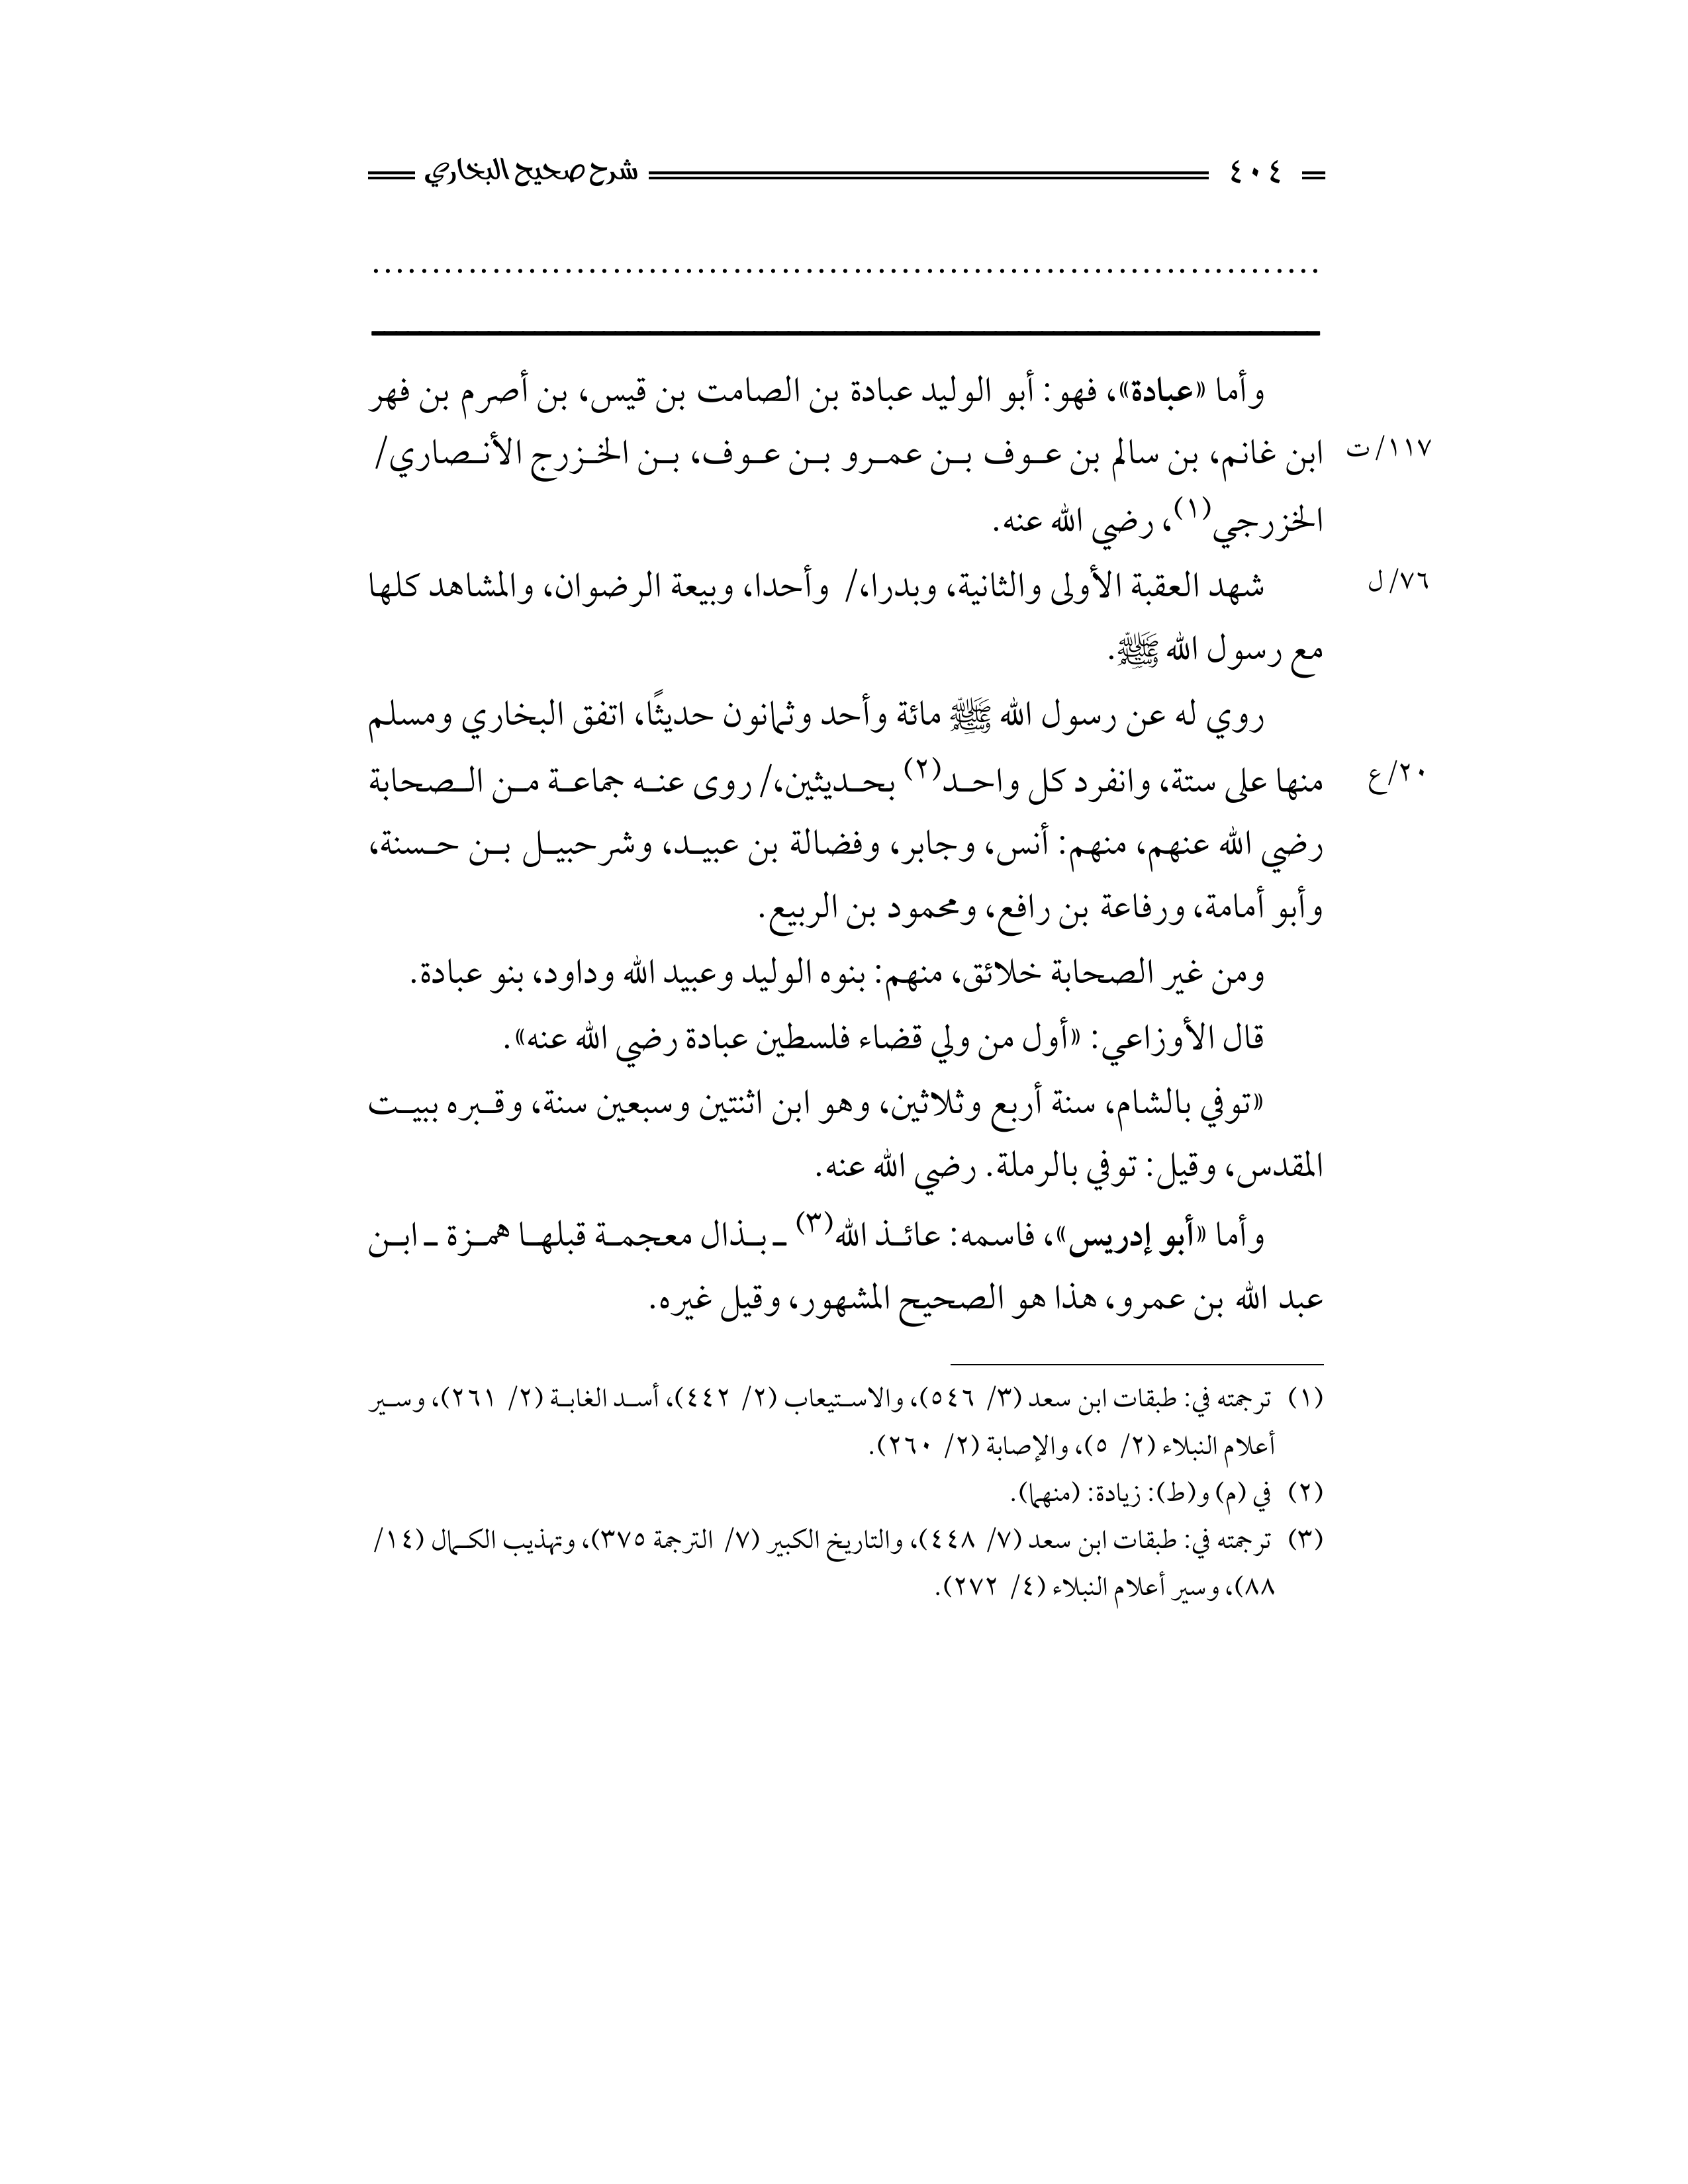 ٤٠٤ شرح صحيح البخاري
................................................................................
وأما «عبادة»، فهو: أبو الوليد عبادة بن الصامت بن قيس، بن أصرم بن فهر
١١٧/ت ابن غانم، بن سالم بن عوف بن عمرو بن عوف، بن الخزرج الأنصاري/
الخزرجي(١)، رضي الله عنه.
٧٦/ل شهد العقبة الأولى والثانية، وبدرا،/ وأحدا، وبيعة الرضوان، والمشاهد كلها
مع رسول الله ﷺ.
روي له عن رسول الله ﷺ مائة وأحد وثمانون حديثًا، اتفق البخاري ومسلم
٢٠/ع منها على ستة، وانفرد كل واحد(٢) بحديثين،/ روى عنه جماعة من الصحابة
رضي الله عنهم، منهم: أنس، وجابر، وفضالة بن عبيد، وشرحبيل بن حسنة،
وأبو أمامة، ورفاعة بن رافع، ومحمود بن الربيع.
ومن غير الصحابة خلائق، منهم: بنوه الوليد وعبيد الله وداود، بنو عبادة.
قال الأوزاعي: «أول من ولي قضاء فلسطين عبادة رضي الله عنه».
«توفي بالشام، سنة أربع وثلاثين، وهو ابن اثنتين وسبعين سنة، وقبره ببيت
المقدس، وقيل: توفي بالرملة. رضي الله عنه.
وأما «أبو إدريس»، فاسمه: عائذ الله(٣) ـ بذال معجمة قبلها همزة ـ ابن
عبد الله بن عمرو، هذا هو الصحيح المشهور، وقيل غيره.
(١) ترجمته في: طبقات ابن سعد (٣/ ٥٤٦)، والاستيعاب (٢/ ٤٤٢)، أسد الغابة (٢/ ٢٦١)، وسير
أعلام النبلاء (٢/ ٥)، والإصابة (٢/ ٢٦٠).
(٢) في (م) و(ط): زيادة: (منهما).
(٣) ترجمته في: طبقات ابن سعد (٧/ ٤٤٨)، والتاريخ الكبير (٧/ الترجمة ٣٧٥)، وتهذيب الكمال (١٤/
٨٨)، وسير أعلام النبلاء (٤/ ٢٧٢).